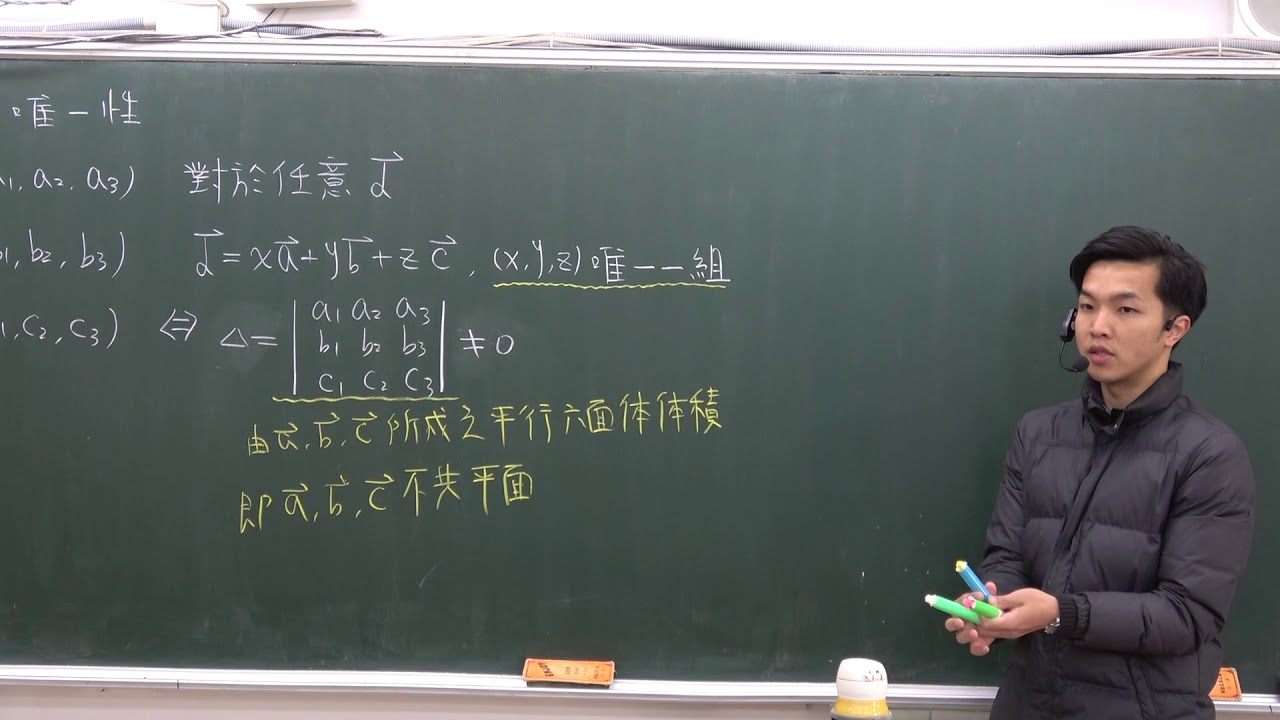 唯一性
a₁, a₂, a₃) 對於任意 d⃗
b₁, b₂, b₃) d⃗ = xa⃗ + yb⃗ + zc⃗, (x, y, z) 唯一一組
, c₂, c₃) ⇔ △ = | a₁ a₂ a₃ |
| b₁ b₂ b₃ | ≠ 0
| c₁ c₂ c₃ |
由 a⃗, b⃗, c⃗ 所成之平行六面体体積
即 a⃗, b⃗, c⃗ 不共平面